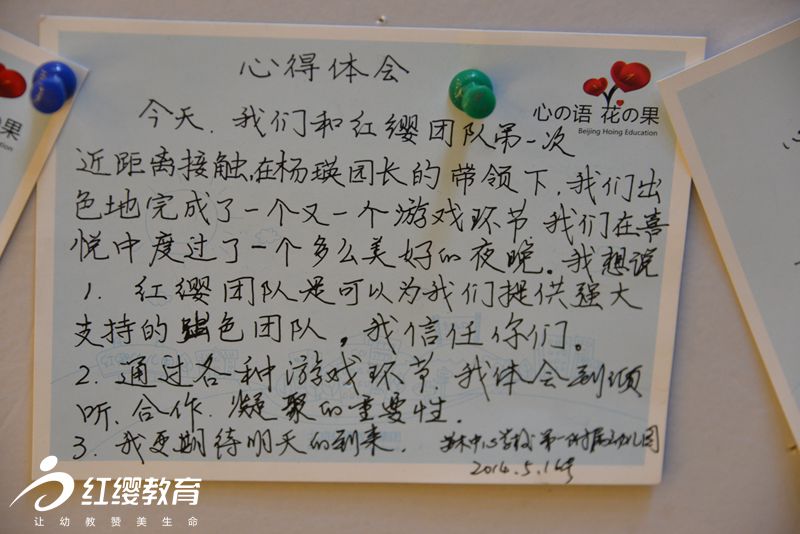 心得体会
今天,我们和红缨团队第一次
近距离接触,在杨瑛园长的带领下,我们出
色地完成了一个又一个游戏环节,我们在喜
悦中度过了一个多么美好的夜晚。我想说
1. 红缨团队是可以为我们提供强大
支持的出色团队,我信任你们。
2. 通过各种游戏环节,我体会到倾
听、合作、凝聚的重要性.
3. 我更期待明天的到来.
中心学校第一附属幼儿园
2014.5.16号
心の语 花の果
Beijing Hoing Education
果
ucation
红缨教育
让幼教赞美生命